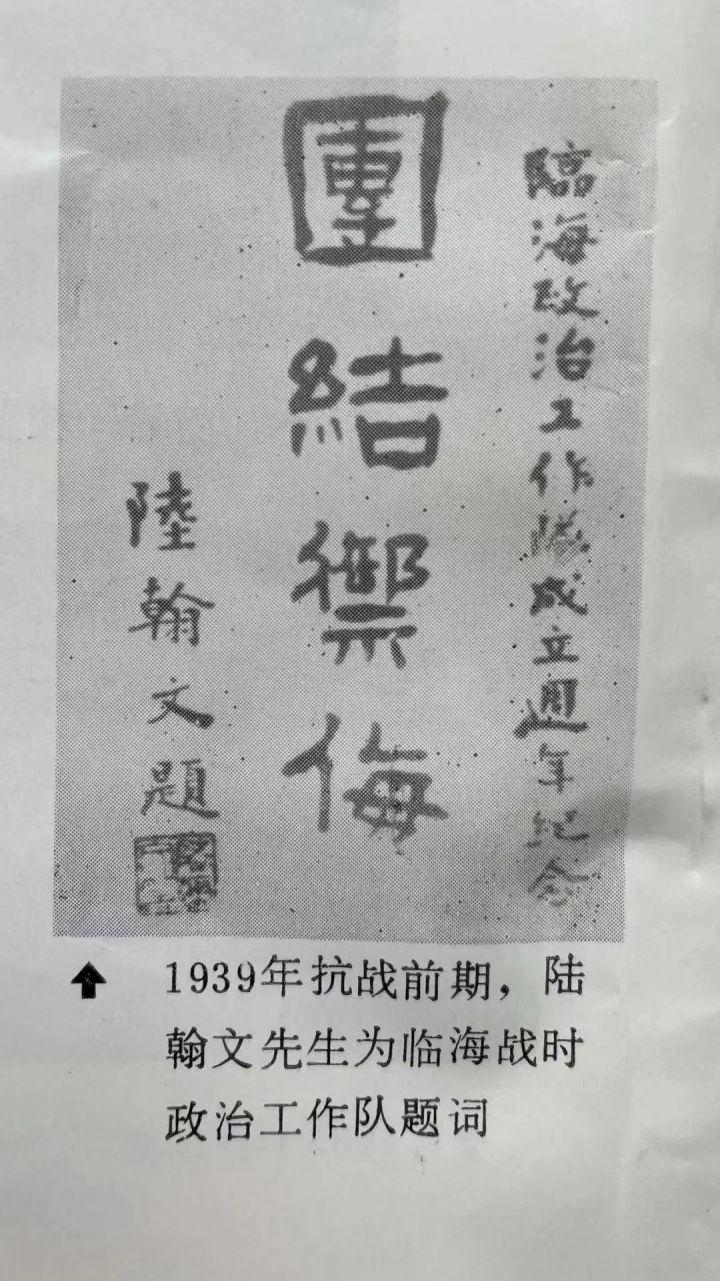 臨海政治工作隊成立週年纪念
團結禦侮
陸翰文題
1939年抗战前期，陆
翰文先生为临海战时
政治工作队题词